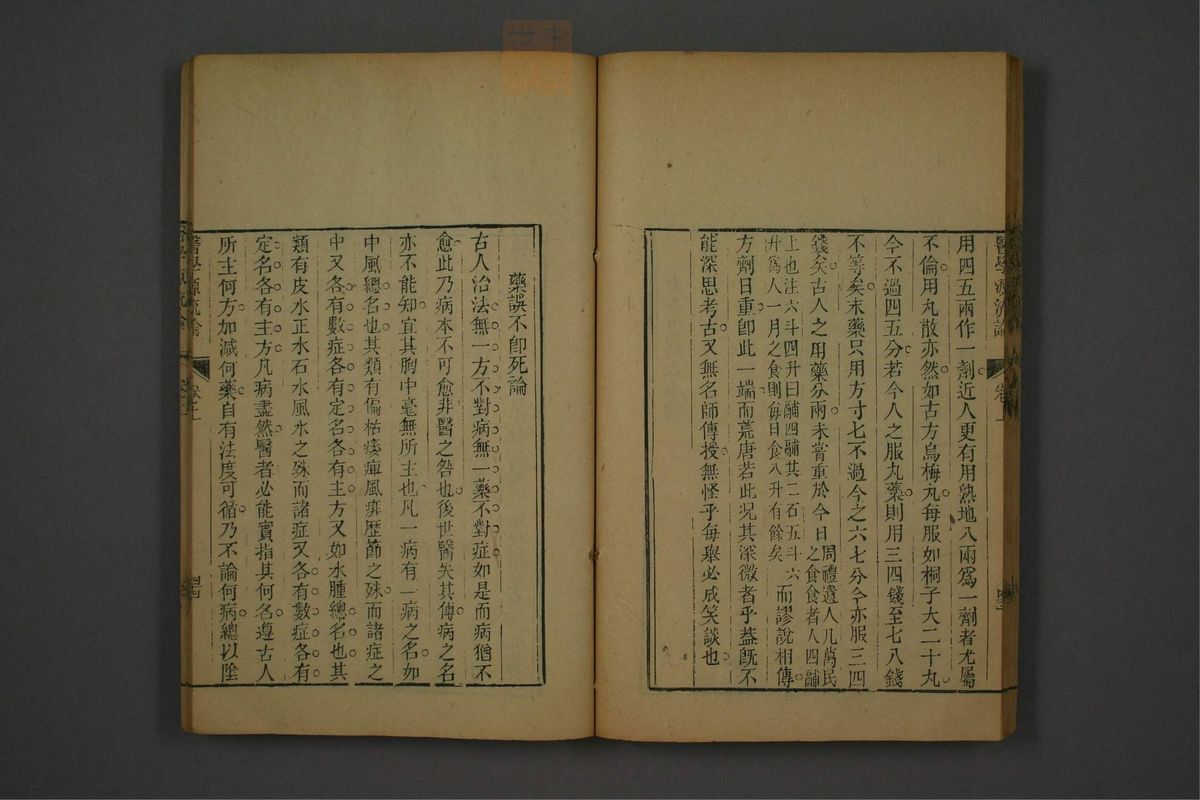 醫學源流論
卷上
用四五兩作一劑近人更有用熟地八兩爲一劑者尤屬
不倫用丸散亦然如古方烏梅丸每服如桐子大二十丸
今不過四五分若今人之服丸藥則用三四錢至七八錢
不等矣末藥只用方寸七不過今之六七分今亦服三四
錢矣古人之用藥分兩未嘗重於今日
周禮遺人凡萬民
之食食者人四鬴
上也注六斗四升曰鬴四鬴共二石五斗六
升爲人一月之食則每日食八升有餘矣
而謬說相傳
方劑日重卽此一端而荒唐若此况其深微者乎蓋旣不
能深思考古又無名師傳授無怪乎每舉必成笑談也
藥誤不卽死論
古人治法無一方不對病無一藥不對症如是而病猶不
愈此乃病本不可愈非醫之咎也後世醫失其傳病之名
亦不能知宜其胸中毫無所主也凡一病有一病之名如
中風總名也其類有偏枯痿痺風痱歴節之殊而諸症之
中又各有數症各有定名各有主方又如水腫總名也其
類有皮水正水石水風水之殊而諸症又各有數症各有
定名各有主方凡病盡然醫者必能實指其何名遵古人
所主何方加減何藥自有法度可循乃不論何病總以陰
醫學源流論